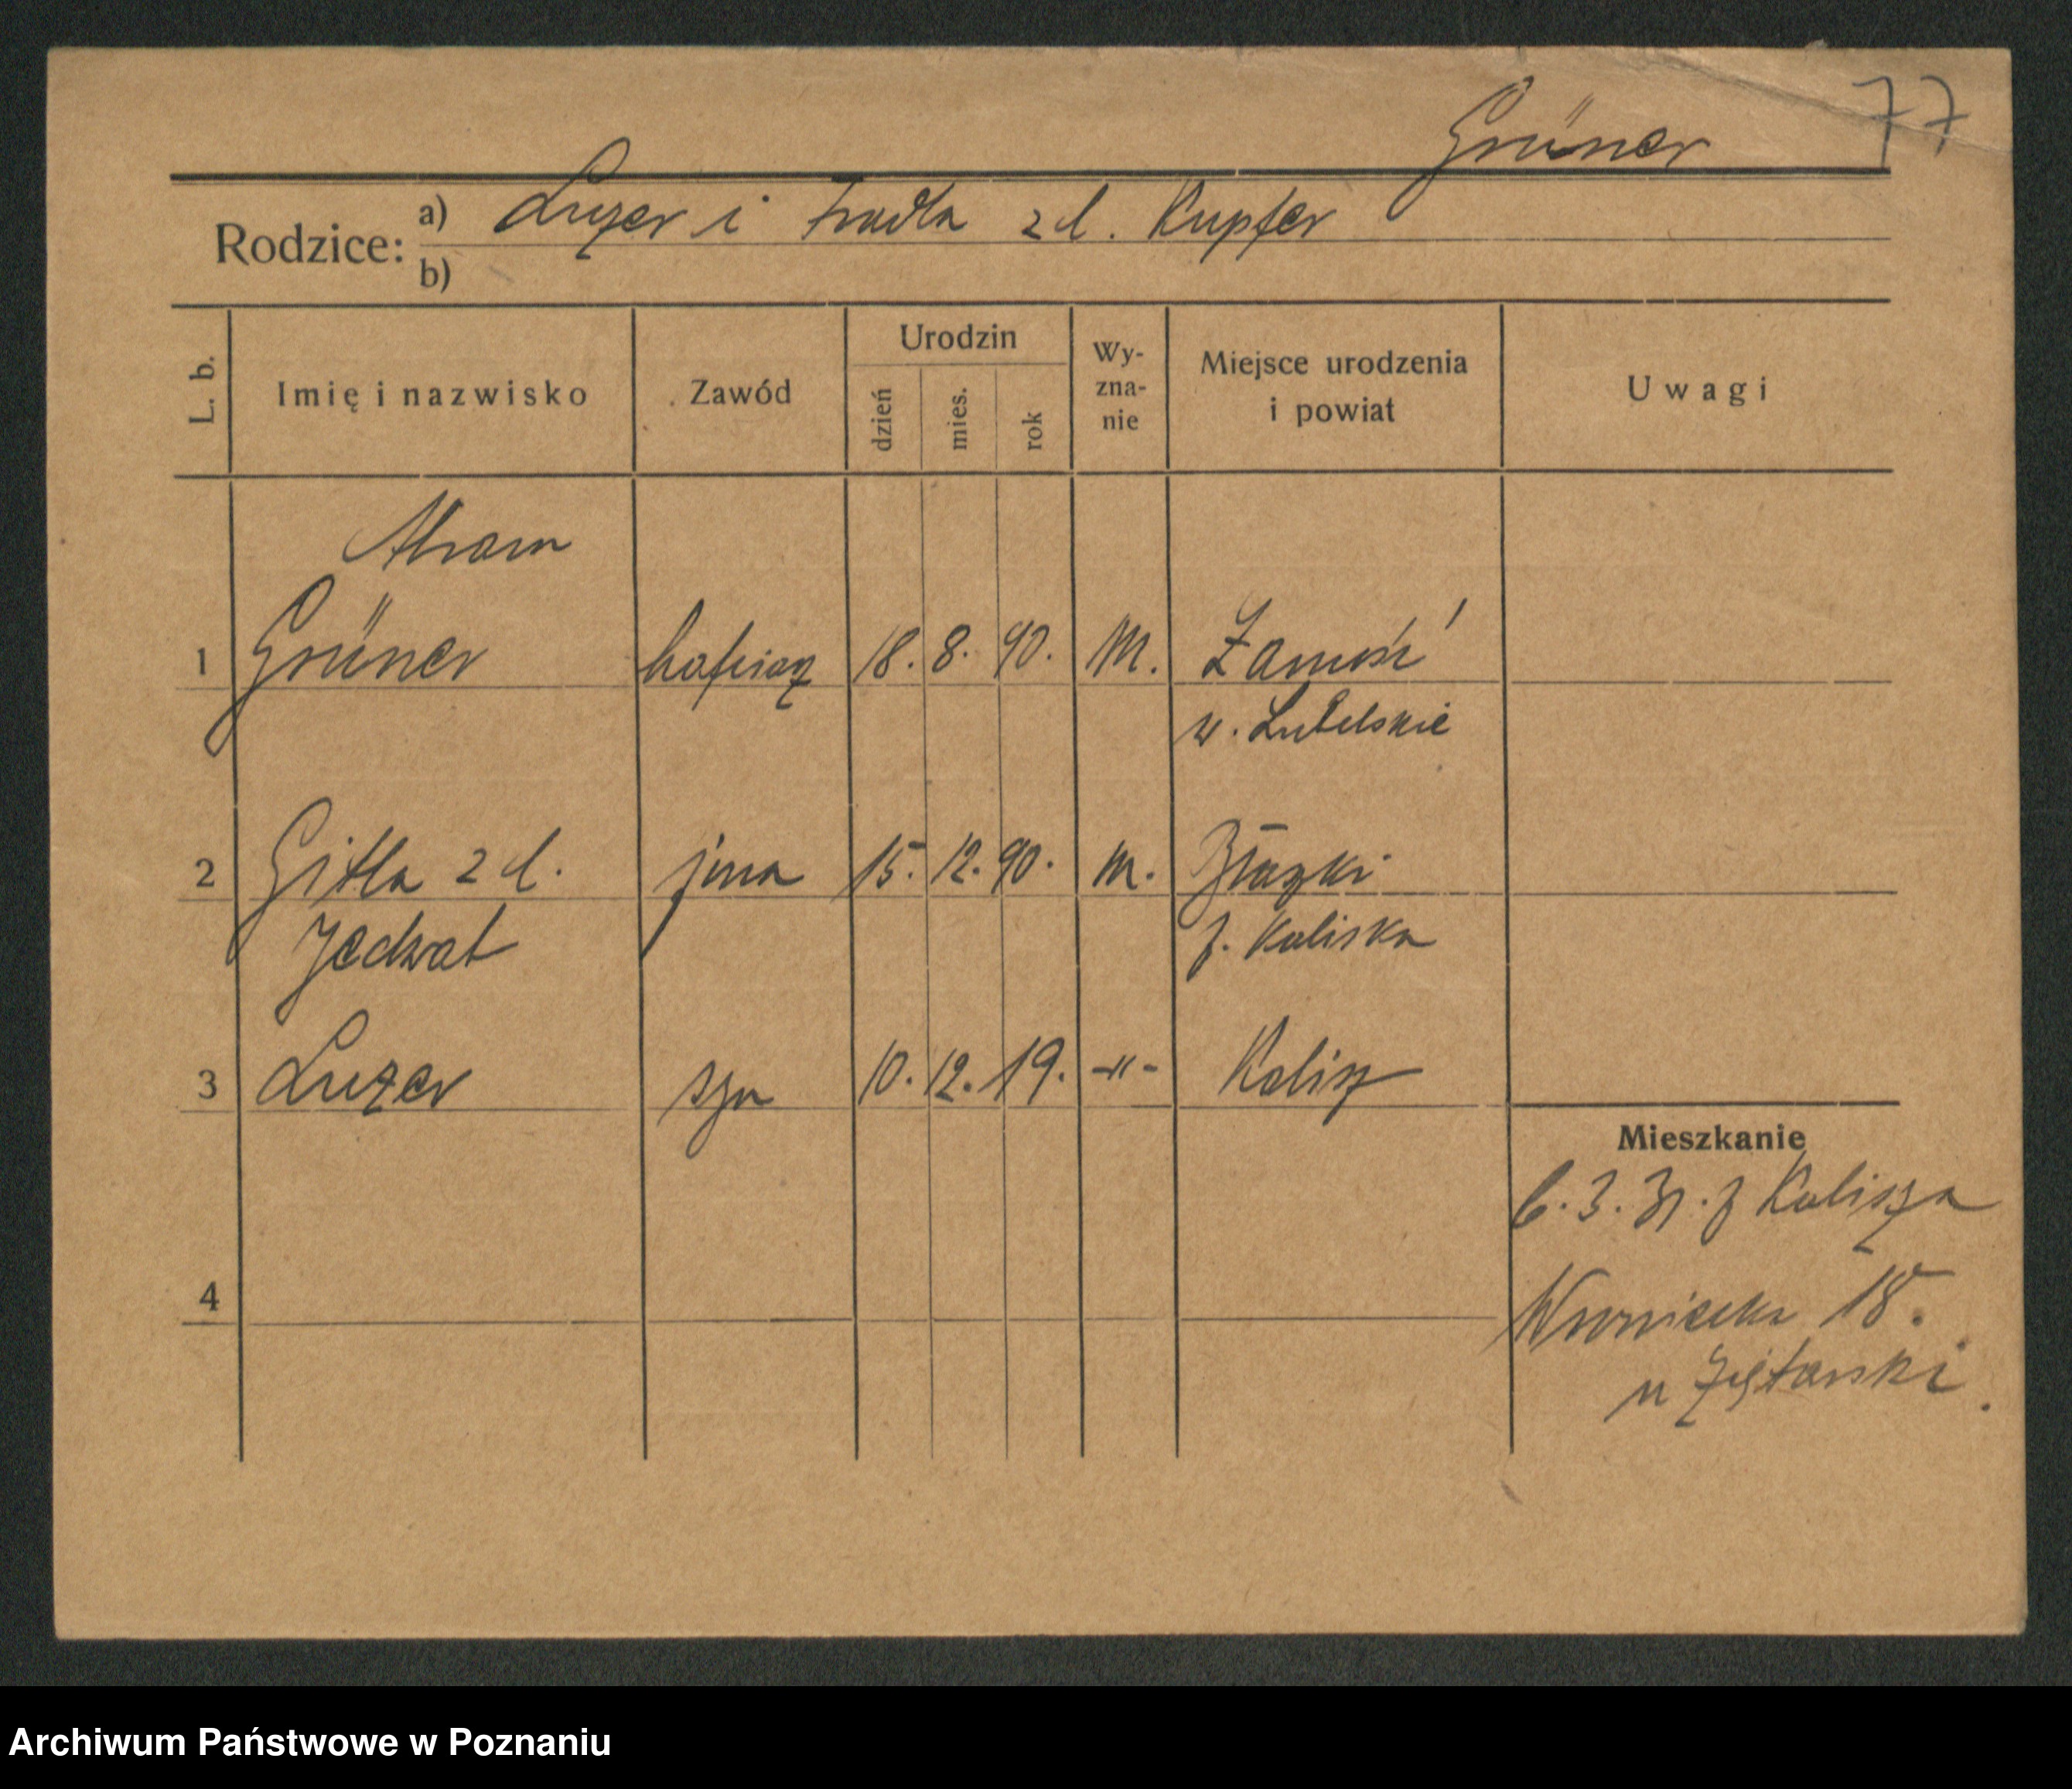 77
Grüner
Rodzice: a) Luzer i Fradla z d. Kupfer
b)
L. b. Imię i nazwisko Zawód Urodzin dzień mies. rok Wy-zna-nie Miejsce urodzenia i powiat Uwagi
Abram
1 Grüner hafciarz 18. 8. 90. M. Zamość
w. Lubelskie
2 Gitla z d. żona 15. 12. 90. m. Błaszki
Jedwab z. Kaliska
3 Luzer syn 10. 12. 19. -"- Kalisz
Mieszkanie
6. 3. 31. z Kalisza
4
Wroniecka 18.
u Ziętarski.
Archiwum Państwowe w Poznaniu